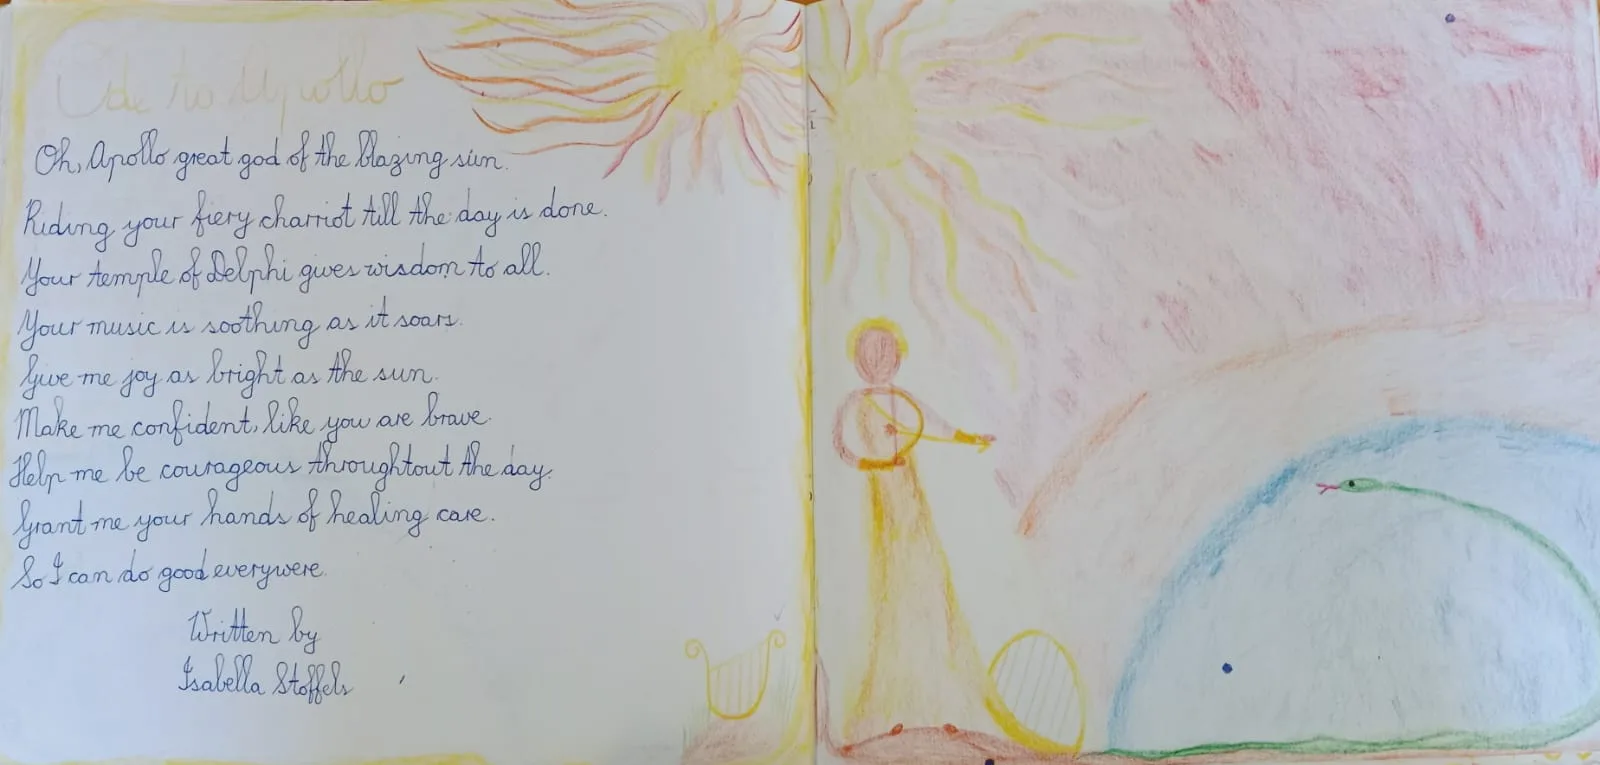 Ode to Apollo
Oh, Apollo great god of the blazing sun.
Riding your fiery charriot till the day is done.
Your temple of Delphi gives wisdom to all.
Your music is soothing as it soars.
Give me joy as bright as the sun.
Make me confident, like you are brave.
Help me be courageous throughtout the day.
Grant me your hands of healing care.
So I can do good everywere.
Written by
Isabella Stoffels